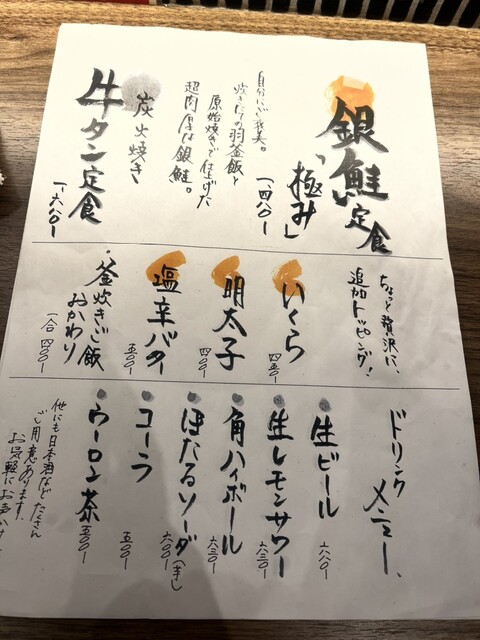 銀鮭定食
「極み」
一、四八〇一
自分にご褒美。
炊きたての羽釜飯と
原始焼きで仕上げた
超肉厚な銀鮭。
炭火焼き
牛タン定食
一、六八〇一
ちょっと贅沢に、
追加トッピング!
いくら
四五〇一
明太子
四〇〇一
塩辛バター
五〇〇一
・釜炊きご飯
おかわり
一合 四〇〇一
ドリンク
メニュー、
生ビール
六八〇一
生レモンサワー
六三〇一
角ハイボール
六三〇一
ほたるソーダ
六〇〇一
コーラ
五〇〇一
ウーロン茶
五〇〇一
他にも日本酒などたくさん
ご用意あります。
お気軽にお声がけ